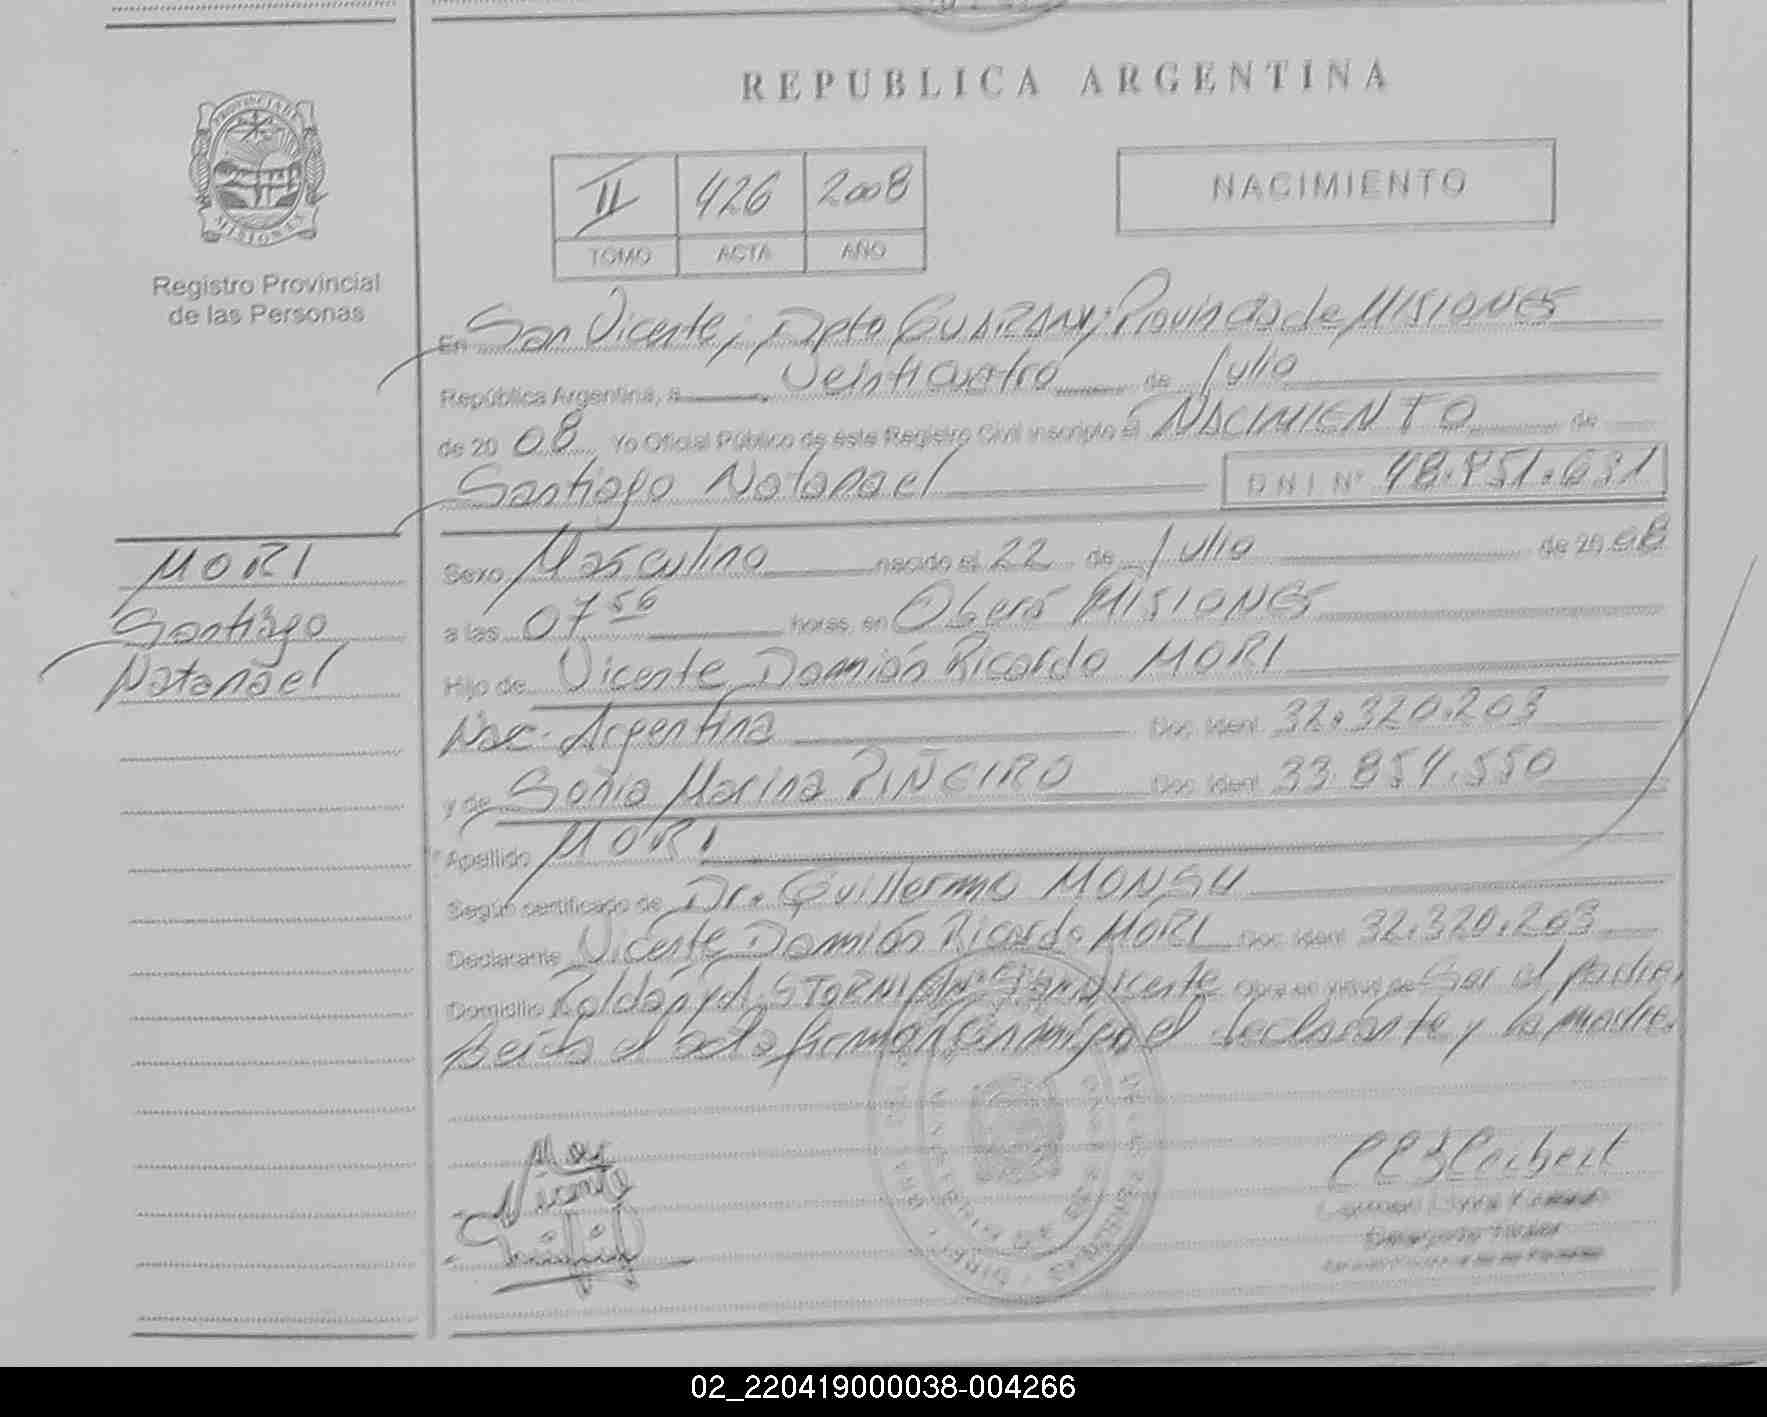 REPUBLICA ARGENTINA
PROVINCIA DE
MISIONES
Registro Provincial
de las Personas
II 426 2008
TOMO ACTA AÑO
NACIMIENTO
En San Vicente; Dpto GUARANY; Provincia de MISIONES
República Argentina, a Veinticuatro de Julio
de 20 08 Yo Oficial Público de éste Registro Civil inscripto el NACIMIENTO de
Santiago Natanael DNI Nº 48.851.631
MORI
Santiago
Natanael
Sexo Masculino nacido el 22 de Julio de 20 08
a las 07 56 horas, en Oberá MISIONES
Hijo de Vicente Damián Ricardo MORI
Nac. Argentina Doc. Ident. 32.320.203
y de Sonia Marina PIÑEIRO Doc. Ident. 33.854.550
Apellido MORI
Según certificado de Dr. Guillermo MONSU
Declarante Vicente Damián Ricardo MORI Doc. Ident. 32.320.203
Domicilio Roldán y A. STORNI San Vicente Obra en virtud de Ser el padre,
Leída el acta firman conmigo el declarante y la madre.
Mori
Vicente
02_220419000038-004266